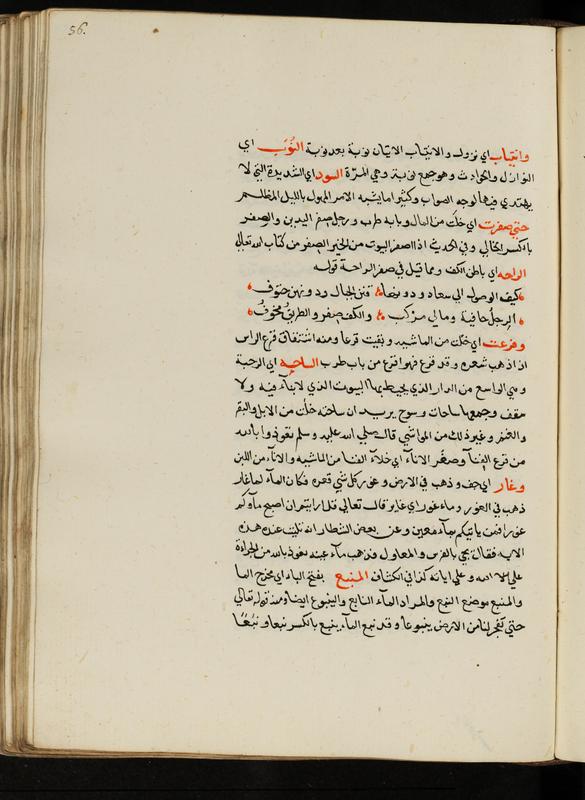 56.
وانتياب اي نزول والانتياب الاتيان نوبة بعد نوبة النُوَب اي
النوازل والحوادث وهو جمع نوبة وهي المرّة السود اي الشديدة التي لا
يهتدي فيها لوجه الصواب وكثيرا ما يشبه الامر المهول بالليل المظلم
حتي صفرت اي خلت من المال وبابه طرب ورجل صفر اليدين والصفر
بالكسر الخالي وفي الحديث ان اصفر البيوت من الخير الصفر من كتاب الله تعالي
الراحه اي باطن الكف ومما قيل في صفر الراحة قوله
كيف الوصول الي سعاد ودونها قنن الجبال ودونهن حتوف
الرجل حافية ومالي مركب والكف صفر والطريق مخوف
وقرعت اي خلت من الماشيه وبقيت قرعا ومنه اشتقاق قرع الراس
اذا ذهب شعره وقد قرع فهو اقرع من باب طرب الساحه اي الرحبة
وهي الواسع من الدار الذي يحيط بها البيوت الذي لا بناء فيه ولا
سقف وجمعها ساحات وسوح يريد ان ساحته خلت من الابل والبقر
والغنم وغير ذلك من المواشي قال صلي الله عليه وسلم نعوذ بالله
من قرع الفناء وصفر الاناء اي خلاء الفنا من الماشيه والاناء من اللبن
وغار اي جف وذهب في الارض وغور كل شي قعره فكان الماء لما غار
ذهب في الغور وماء غور اي غاير قال تعالي قل ارايتم ان اصبح ماوكم
غورا فمن ياتيكم بماء معين وعن بعض الشطار انه تليت عنده هذه
الايه فقال يجي بالفوس والمعاول فذهب ماء عينه نعوذ بالله من الجراءة
علي الله وعلي اياته كذا في الكشاف المنبع بفتح الباء اي مخرج الما
والمنبع موضع النبع والمراد الماء النابع والينبوع ايضا ومنه قوله تعالي
حتي تفجر لنا من الارض ينبوعا وقد نبع الماء ينبع بالكسر نبعا ونبوعا